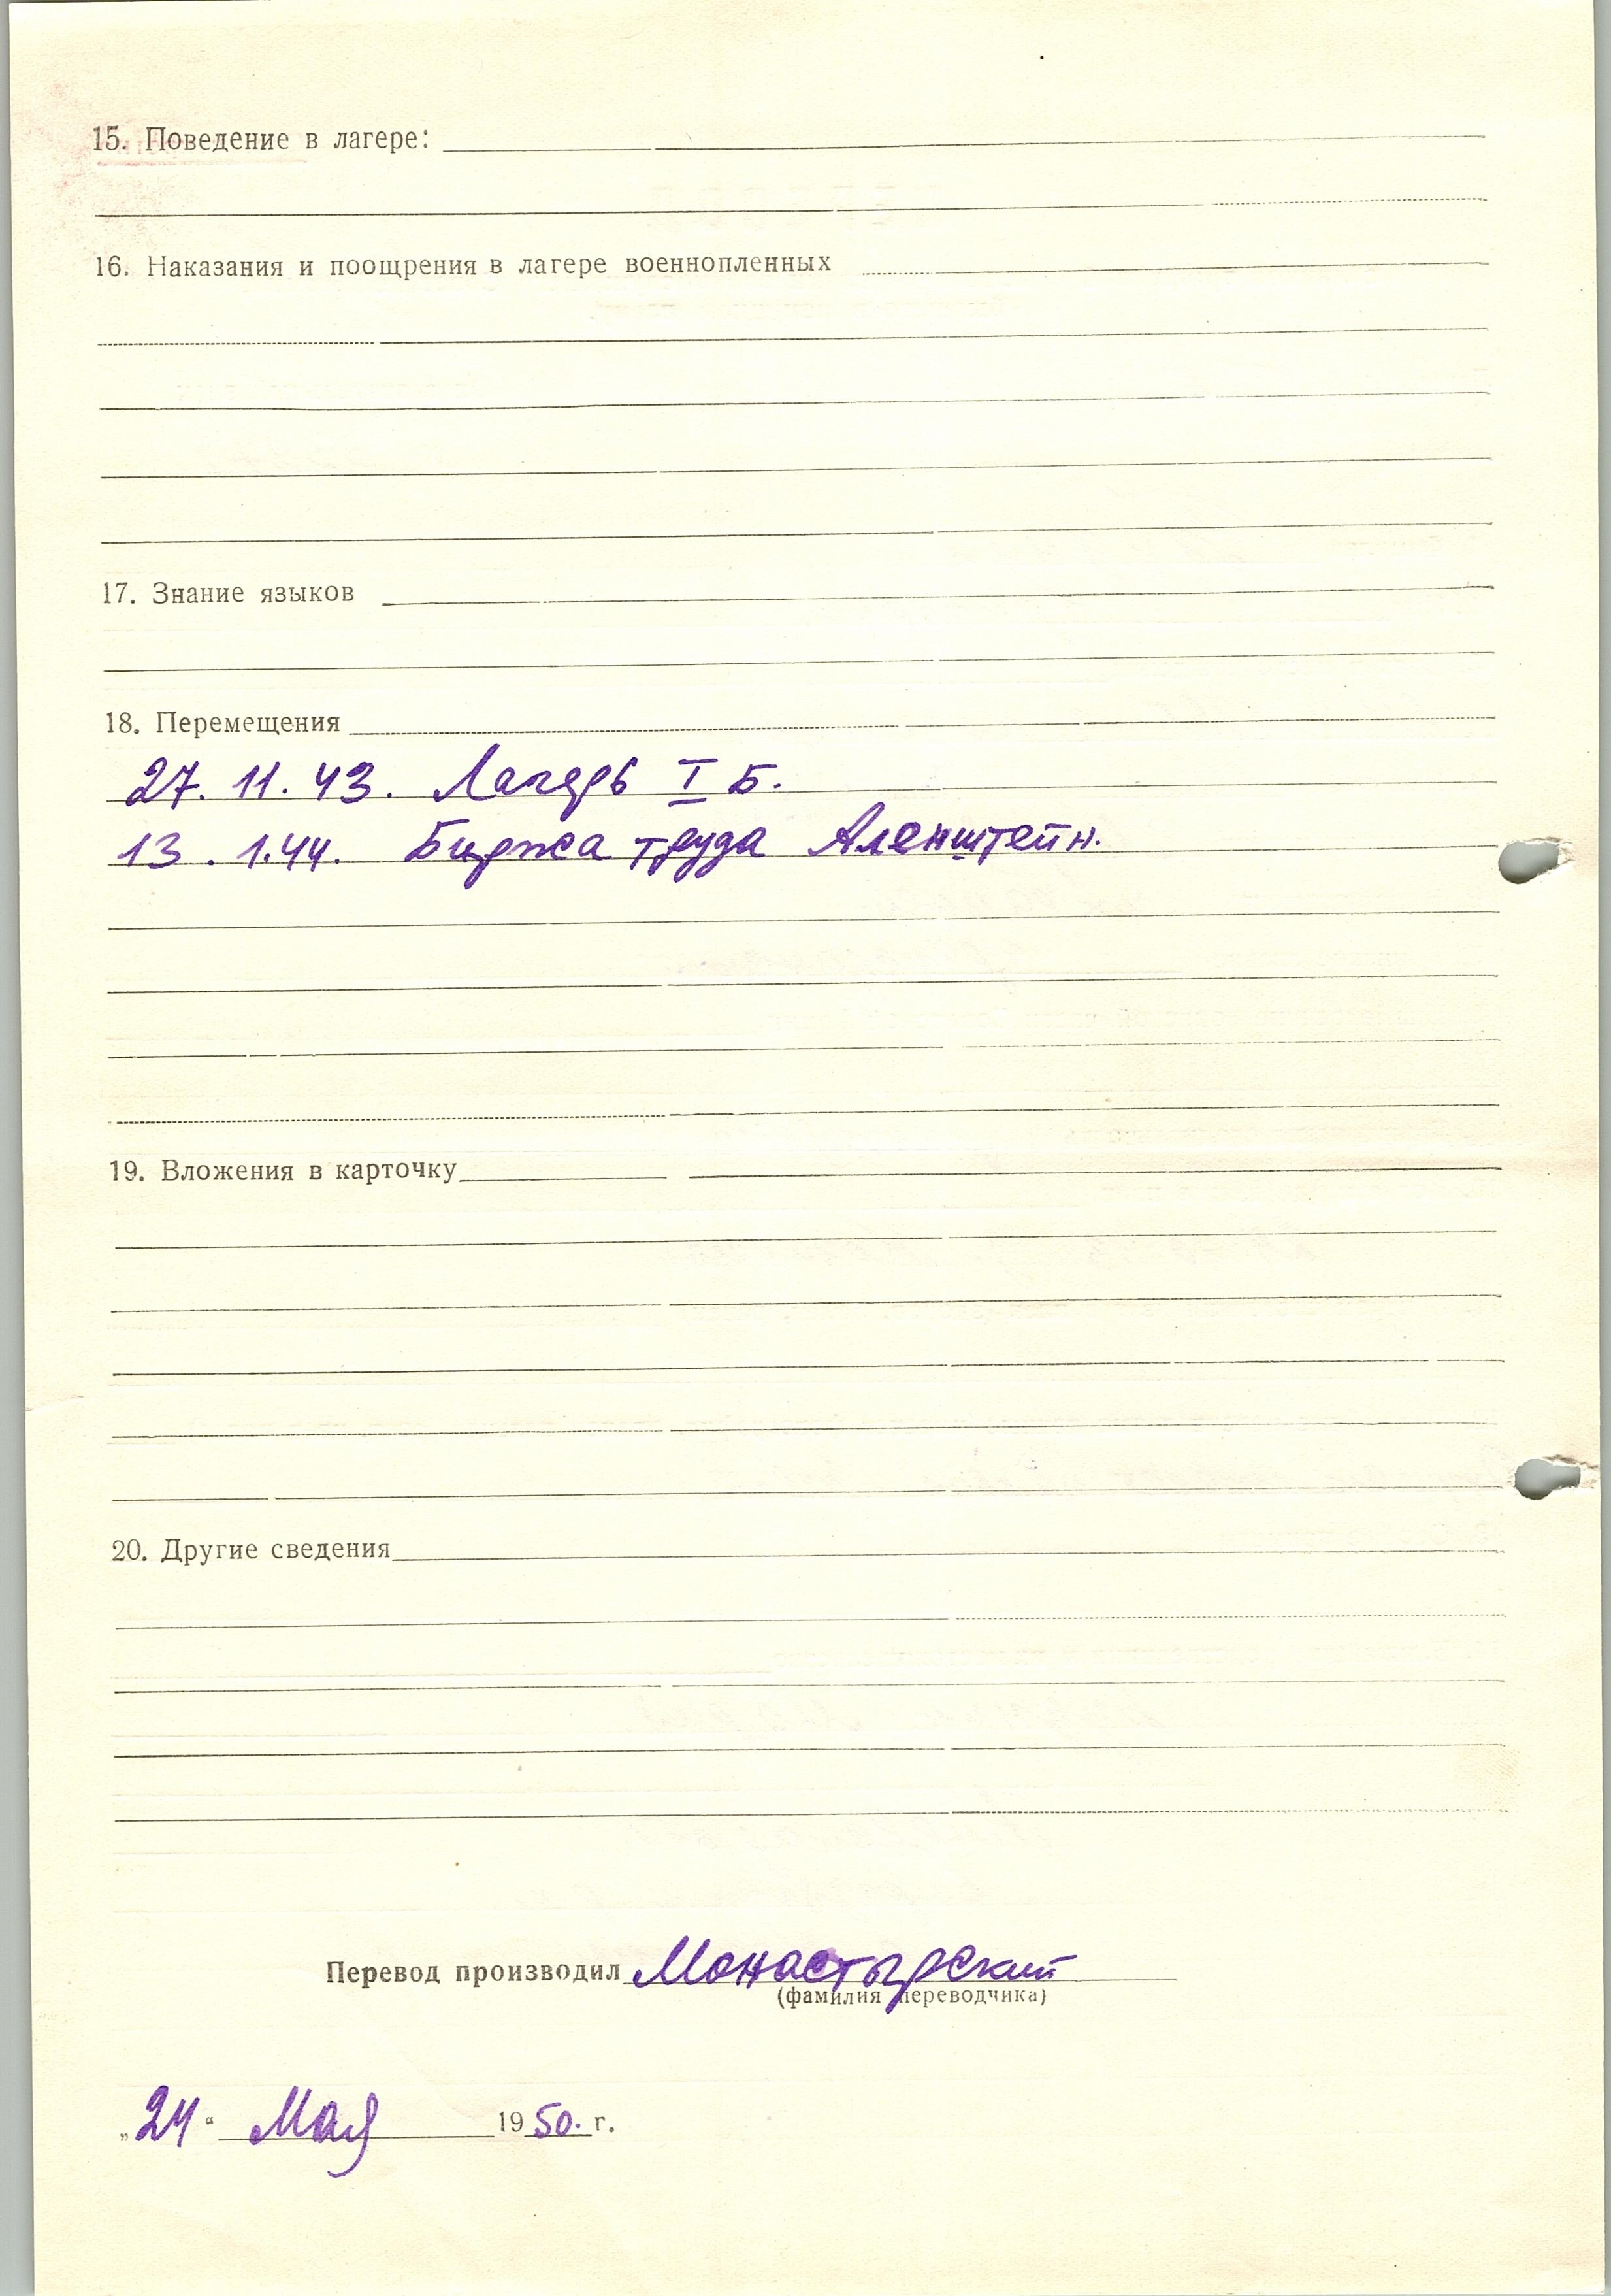 15. Поведение в лагере:
16. Наказания и поощрения в лагере военнопленных
17. Знание языков
18. Перемещения
27. 11. 43. Лагерь I Б.
13. 1.44. Биржа труда Аленштейн.
19. Вложения в карточку
20. Другие сведения
Перевод производил Монастырский
(фамилия переводчика)
„24“ Мая 1950. г.